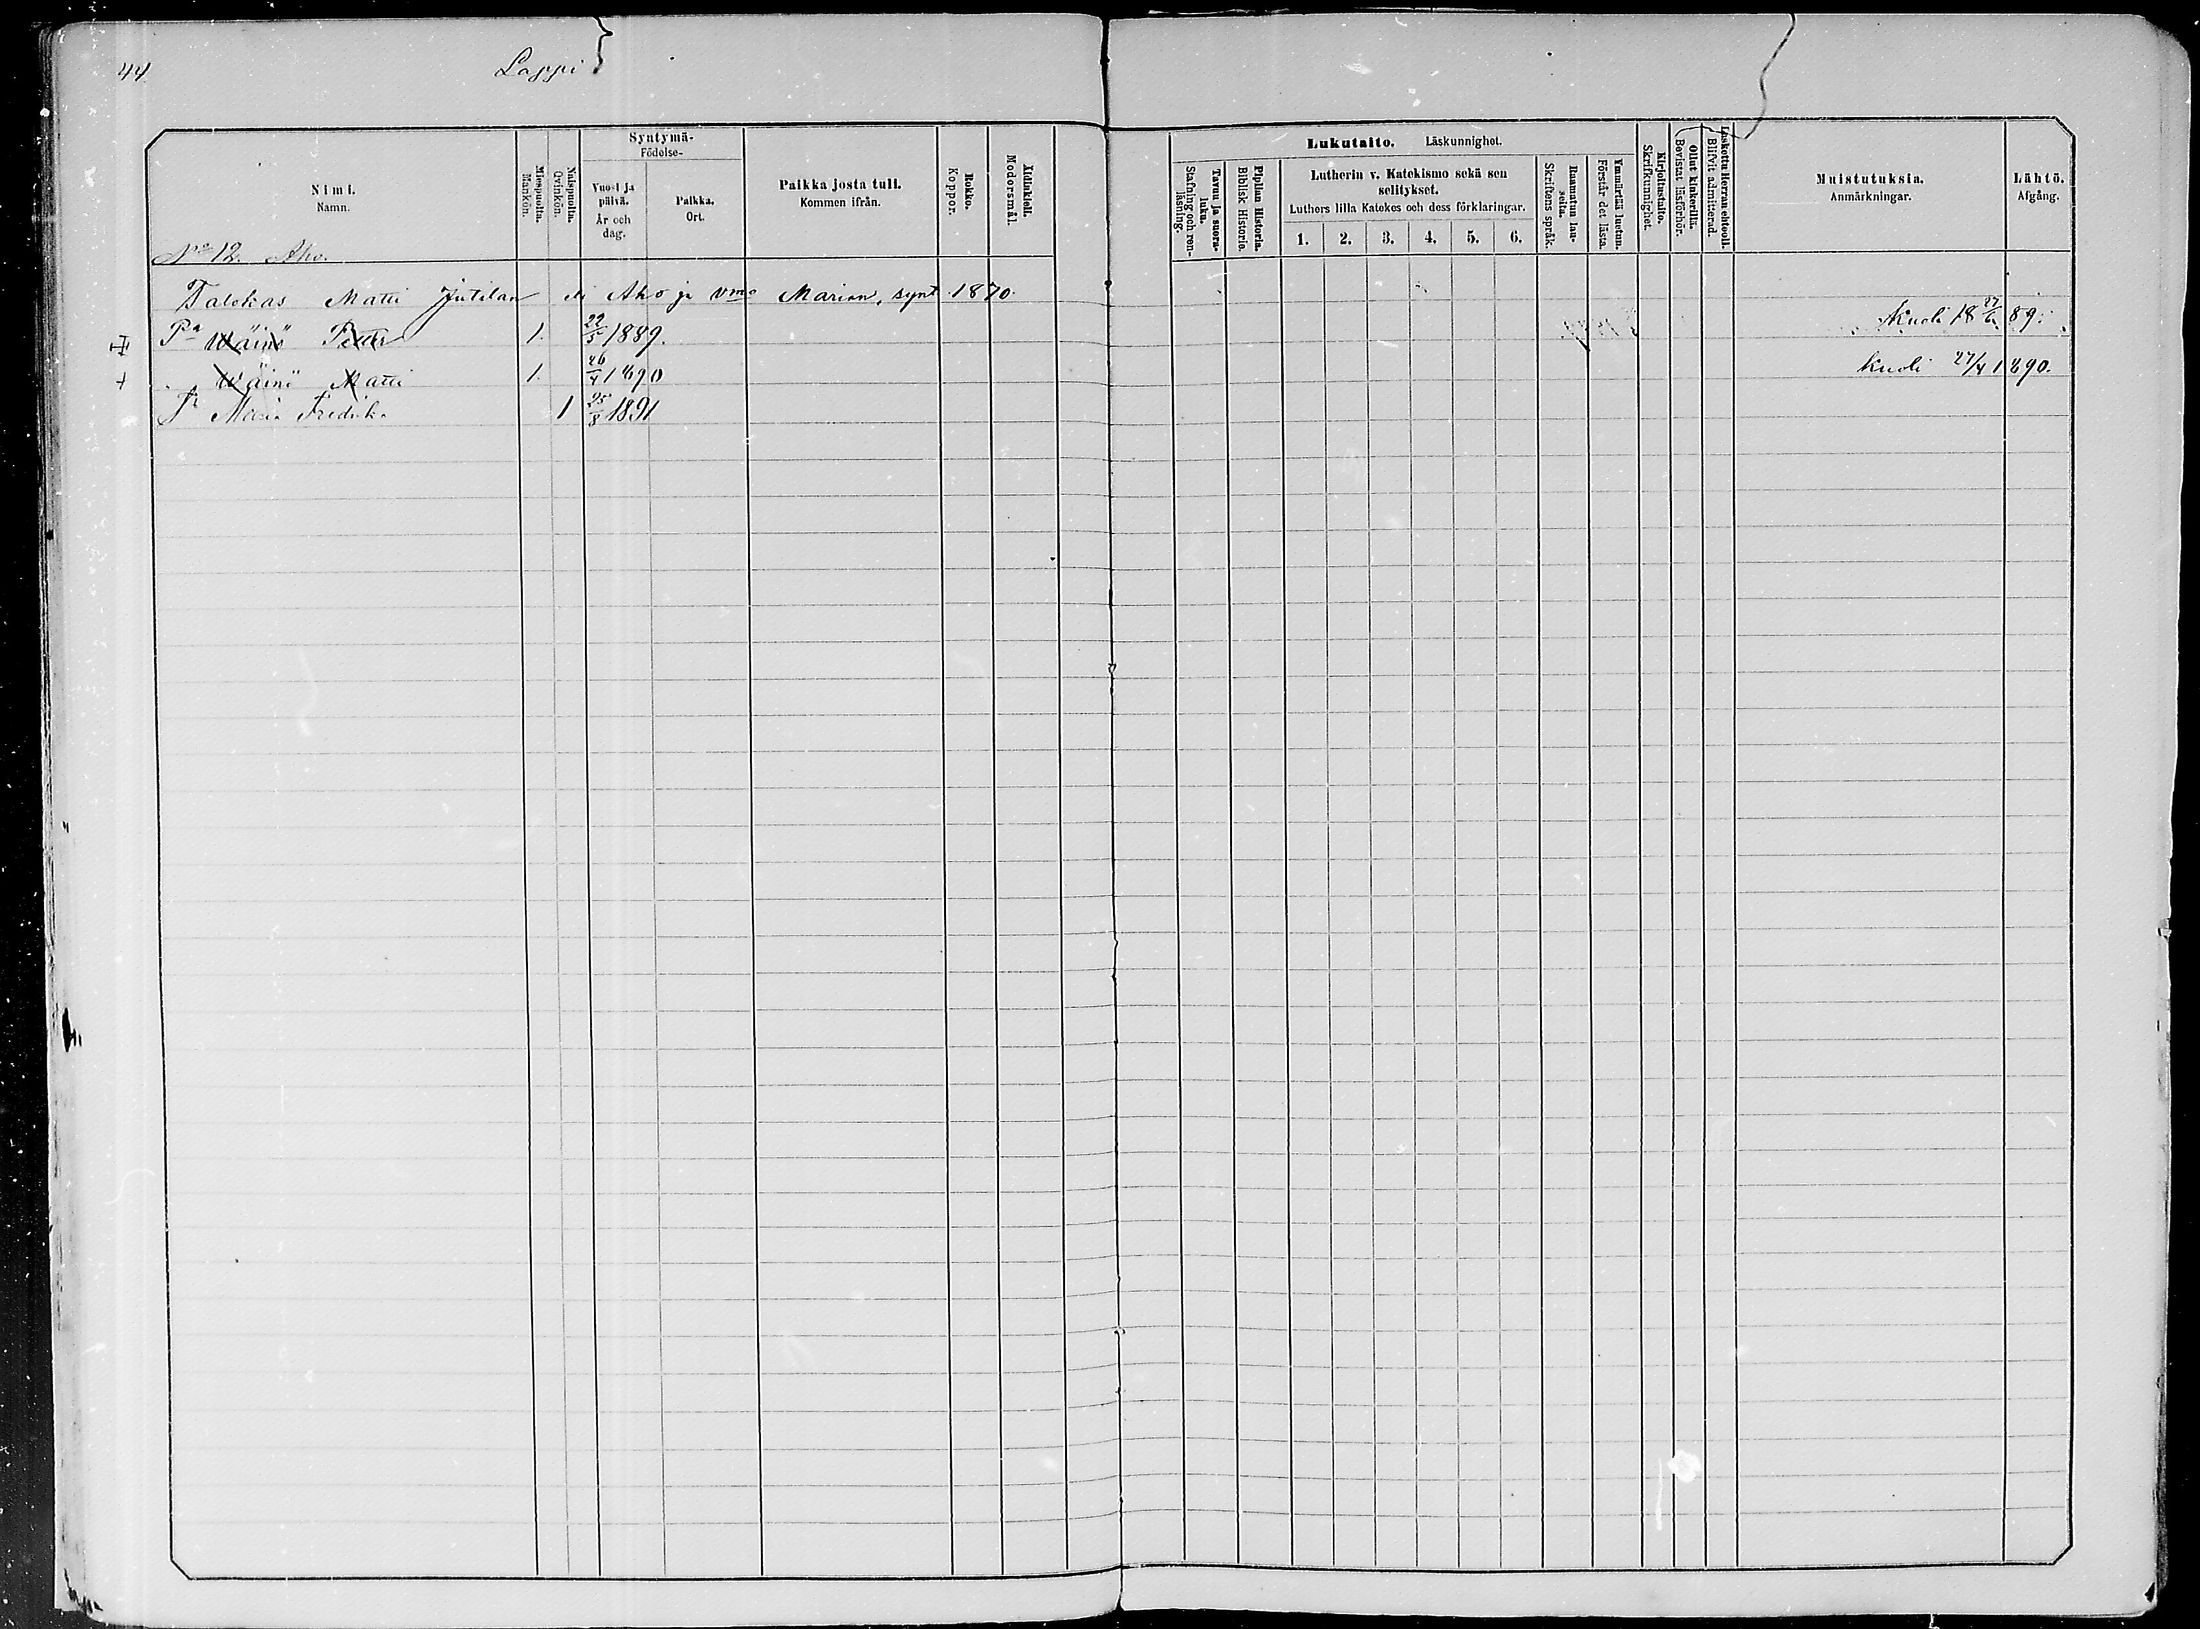 44
Lappi
Nimi.
Namn.
Miespuolia.
Mankön.
Naispuolia.
Qvinkön.
Syntymä-
Födelse-
Vuosi ja päivä.
År och dag.
Paikka.
Ort.
Paikka josta tuli.
Kommen ifrån.
Rokko.
Koppor.
Äidinkieli.
Modersmål.
Lukutaito. Läskunnighet.
Tavuu ja suora-luku.
Stafning och ren-läsning.
Piplian Historia.
Biblisk Historie.
Lutherin v. Katekismo sekä sen
selitykset.
Luthers lilla Katekes och dess förklaringar.
1. 2. 3. 4. 5. 6.
Raamatun lau-seita.
Skriftens språk.
Ymmärtää luetun.
Förstår det lästa.
Kirjoitustaito.
Skrifkunnighet.
Ollut kinkerillä.
Bevistat läsförhör.
Laskettu Herran ehtooll.
Blifvit admitterad.
Muistutuksia.
Anmärkningar.
Lähtö.
Afgång.
No 12. Aho.
Talokas Matti Jutilan eli Aho ja vmo Marian, synt. 1870.
Pa Wäinö Petter 1. 22/5 1889. Kuoli 18 27/6 89.
Wäinö Matti 1. 26/4 1890 Kuoli 27/4 1890.
Tr Maria Fredrika 1 25/8 1891